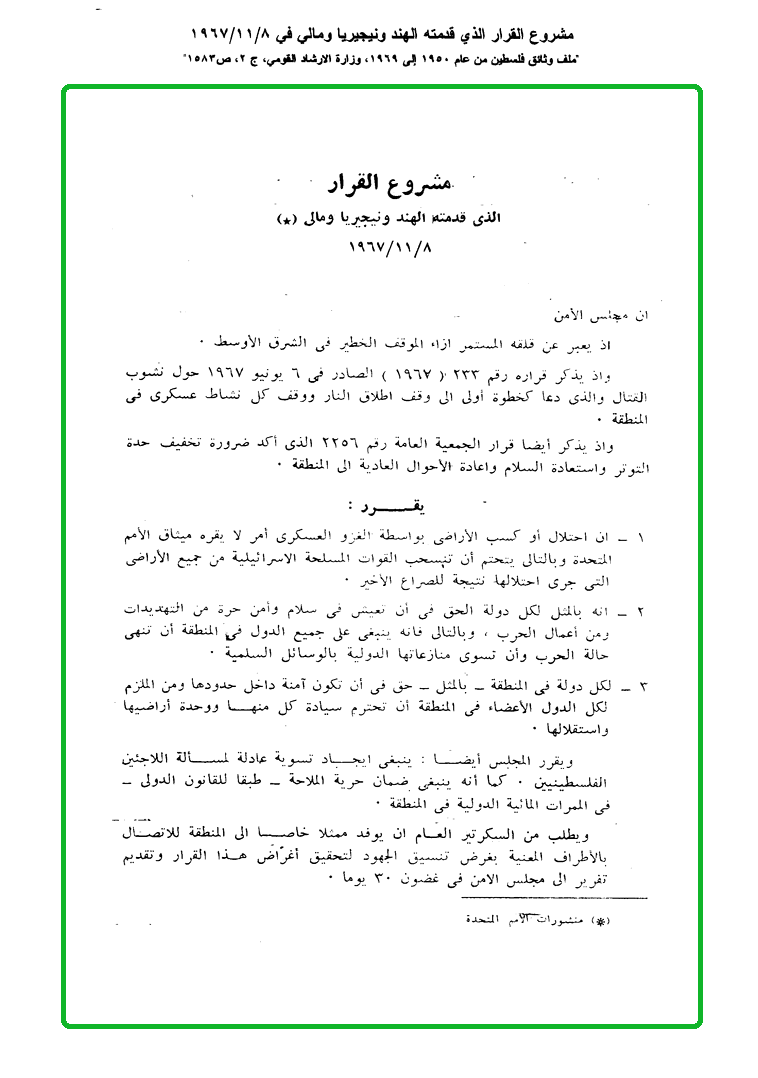 مشروع القرار الذي قدمته الهند ونيجيريا ومالي في ١٩٦٧/١١/٨
"ملف وثائق فلسطين من عام ١٩٥٠ إلى ١٩٦٩، وزارة الارشاد القومي، ج ٢، ص١٥٨٣"
مشروع القرار
الذى قدمته الهند ونيجيريا ومالى (*)
١٩٦٧/١١/٨
ان مجلس الأمن
اذ يعبر عن قلقه المستمر ازاء الموقف الخطير فى الشرق الأوسط ٠
واذ يذكر قراره رقم ٢٣٣ ( ١٩٦٧ ) الصادر فى ٦ يونيو ١٩٦٧ حول نشوب
القتال والذى دعا كخطوة أولى الى وقف اطلاق النار ووقف كل نشاط عسكرى فى
المنطقة ٠
واذ يذكر أيضا قرار الجمعية العامة رقم ٢٢٥٦ الذى أكد ضرورة تخفيف حدة
التوتر واستعادة السلام واعادة الأحوال العادية الى المنطقة ٠
يقـــرر :
١ ـ ان احتلال أو كسب الأراضى بواسطة الغزو العسكرى أمر لا يقره ميثاق الأمم
المتحدة وبالتالى يتحتم أن تنسحب القوات المسلحة الاسرائيلية من جميع الأراضى
التى جرى احتلالها نتيجة للصراع الأخير ٠
٢ ـ انه بالمثل لكل دولة الحق فى أن تعيش فى سلام وأمن حرة من التهديدات
ومن أعمال الحرب ، وبالتالى فانه ينبغى على جميع الدول فى المنطقة أن تنهى
حالة الحرب وأن تسوى منازعاتها الدولية بالوسائل السلمية ٠
٣ ـ لكل دولة فى المنطقة ـ بالمثل ـ حق فى أن تكون آمنة داخل حدودها ومن الملزم
لكل الدول الأعضاء فى المنطقة أن تحترم سيادة كل منهـــا ووحدة أراضيها
واستقلالها ٠
ويقرر المجلس أيضـــا : ينبغى ايجـــاد تسوية عادلة لمســـألة اللاجئين
الفلسطينيين ٠ كما أنه ينبغى ضمان حرية الملاحة ـ طبقا للقانون الدولى ـ
فى الممرات المائية الدولية فى المنطقة ٠
ويطلب من السكرتير العـــام ان يوفد ممثلا خاصـــا الى المنطقة للاتصـــال
بالأطراف المعنية بغرض تنسيق الجهود لتحقيق أغراض هـــذا القرار وتقديم
تقرير الى مجلس الامن فى غضون ٣٠ يوما ٠
(*) منشورات الأمم المتحدة